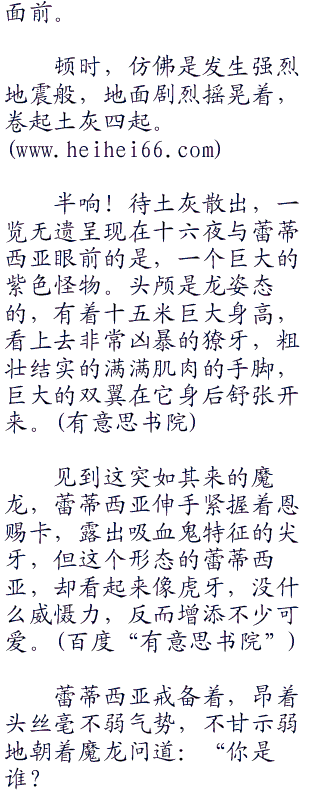 面前。
顿时，仿佛是发生强烈
地震般，地面剧烈摇晃着，
卷起土灰四起。
(www.heihei66.com)
半响！待土灰散出，一
览无遗呈现在十六夜与蕾蒂
西亚眼前的是，一个巨大的
紫色怪物。头颅是龙姿态
的，有着十五米巨大身高，
看上去非常凶暴的獠牙，粗
壮结实的满满肌肉的手脚，
巨大的双翼在它身后舒张开
来。(有意思书院)
见到这突如其来的魔
龙，蕾蒂西亚伸手紧握着恩
赐卡，露出吸血鬼特征的尖
牙，但这个形态的蕾蒂西
亚，却看起来像虎牙，没什
么威慑力，反而增添不少可
爱。(百度“有意思书院”)
蕾蒂西亚戒备着，昂着
头丝毫不弱气势，不甘示弱
地朝着魔龙问道：“你是
谁？